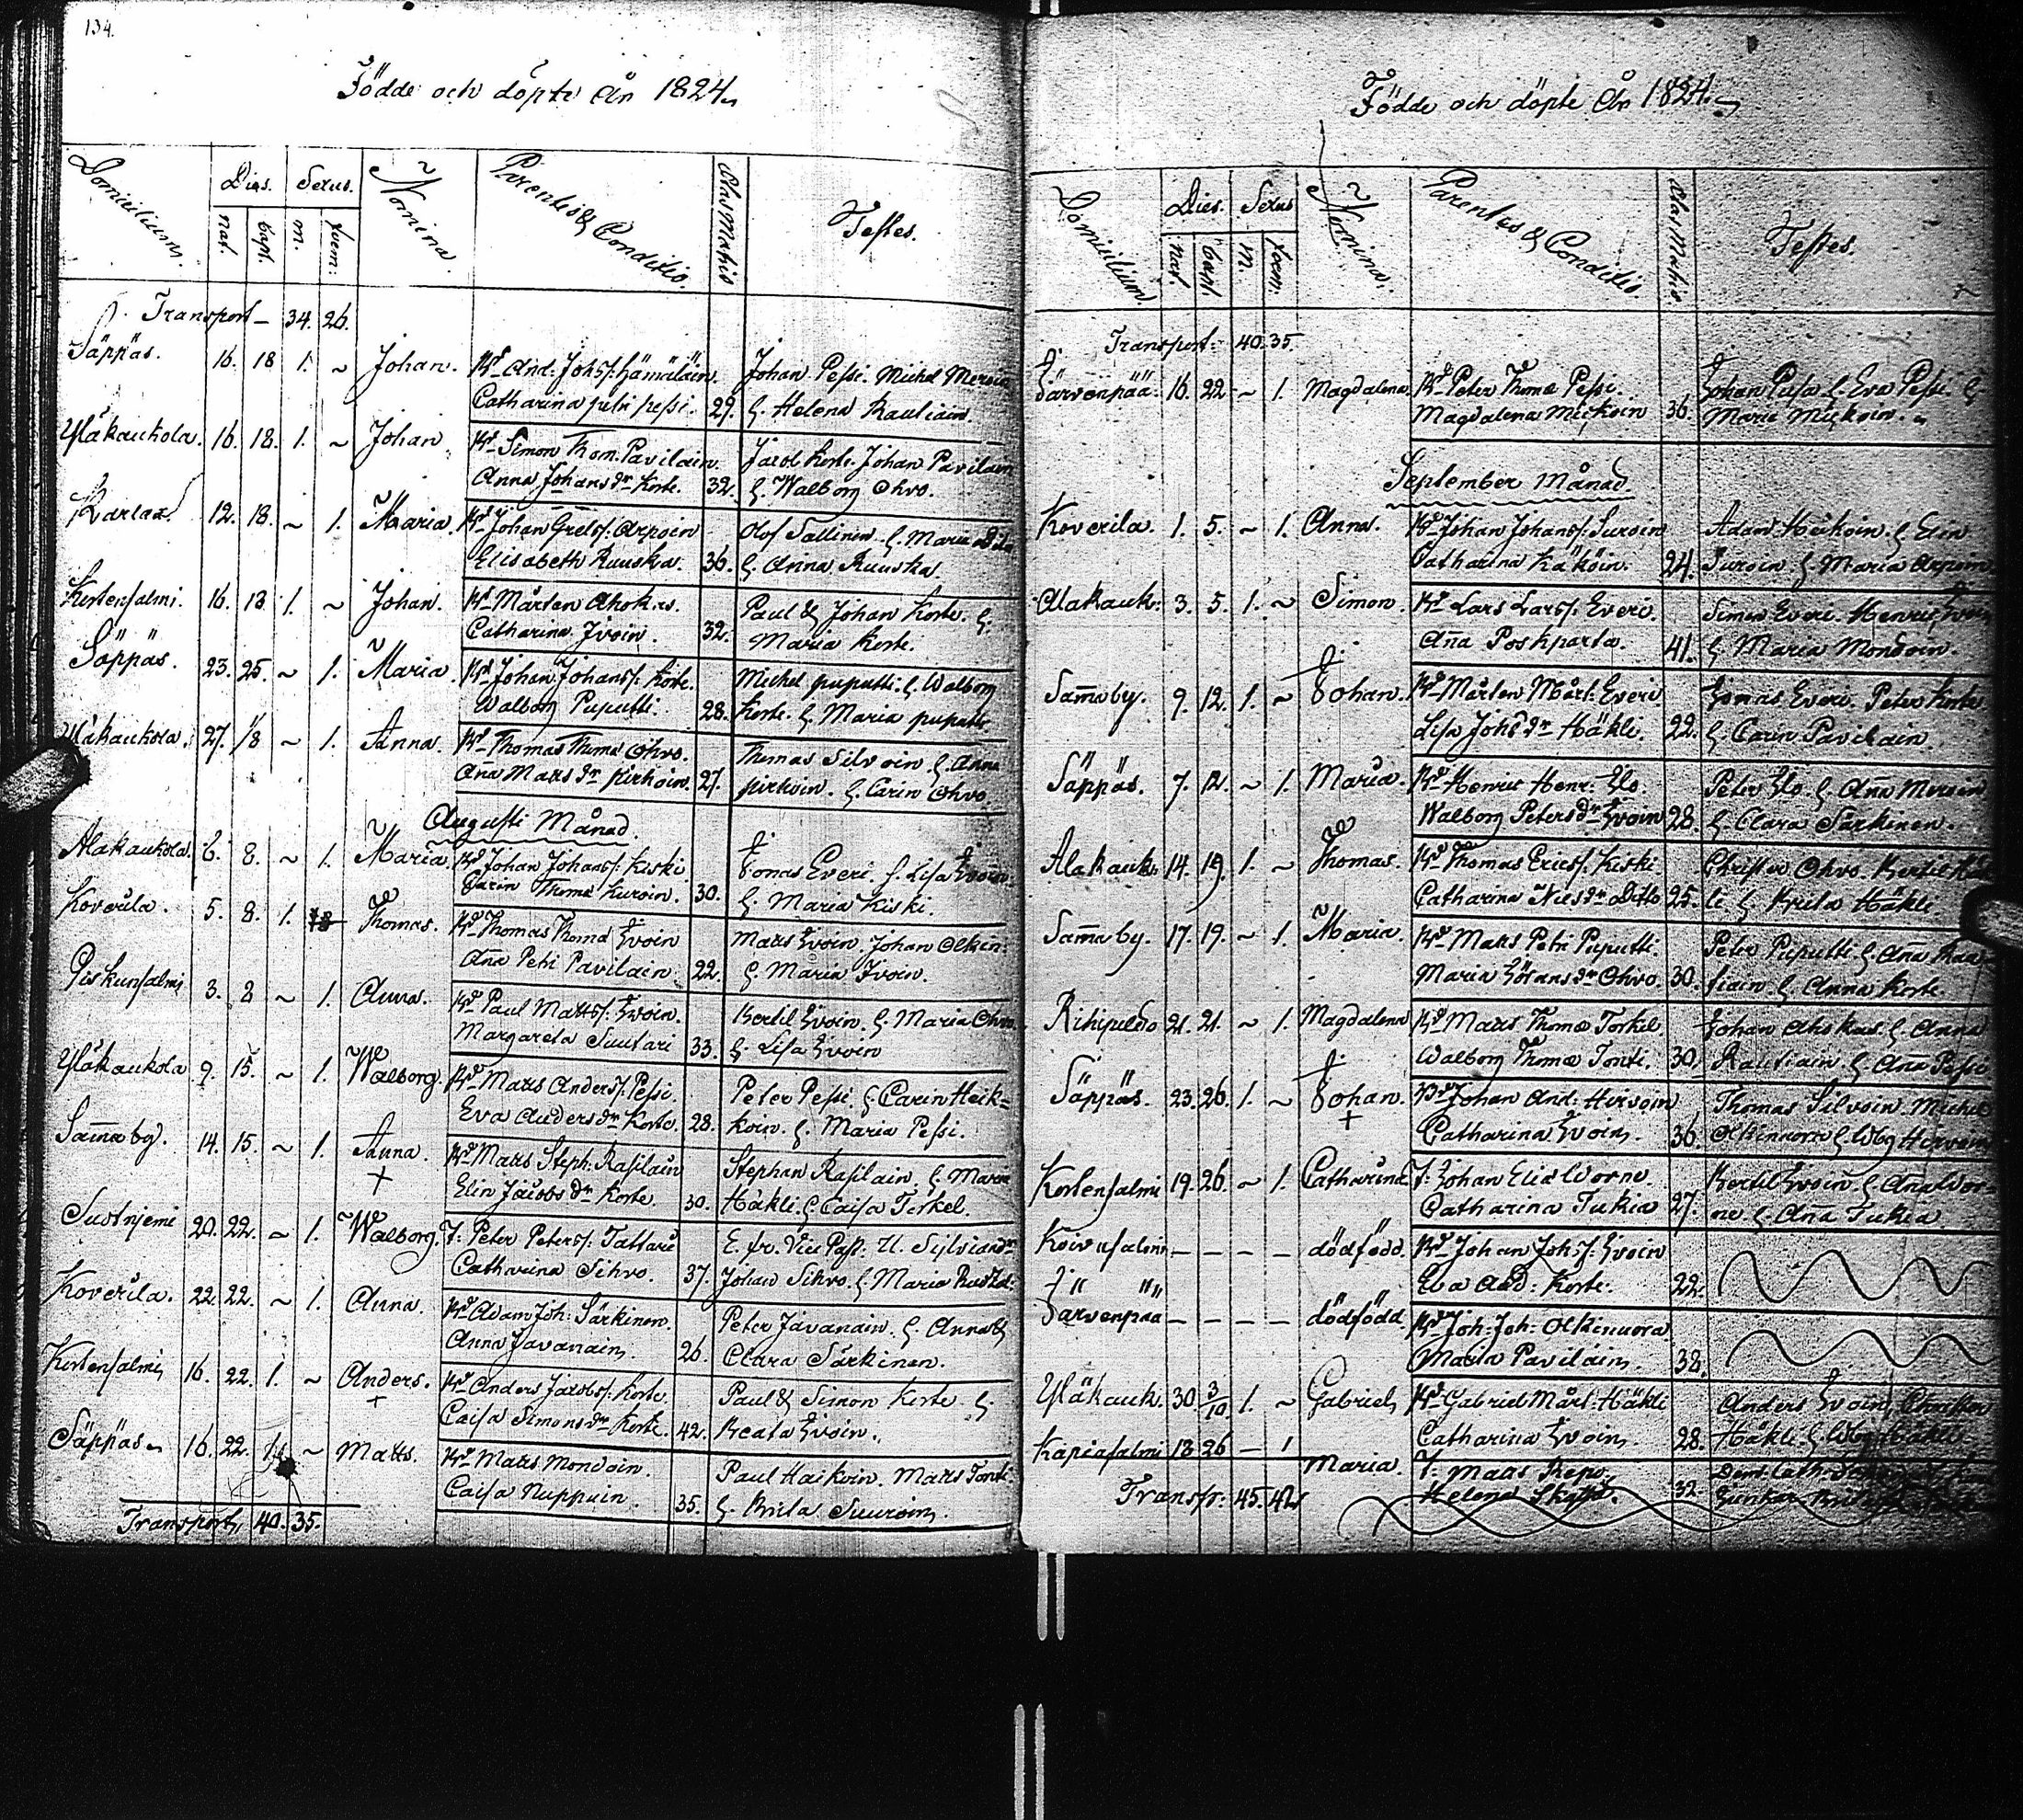 134.
Födde och döpte År 1824.
Domicilium. Dies. Sexus. Nomina. Parentes & Conditio. Ætas Matris Testes.
nat. bapt. m. fœm:
Transport – 34. 26.
Säppäs. 16. 18 1. ~ Johan. Bd And: Johs/: Hämäläin. Johan Pessi. Michel
Catharina petri pessi. 29. h. Helena Rautiain.
Yläkaukola. 16. 18. 1. ~ Johan Bd Simon Thom. Pavilain. Jacob Korte. Johan Pavilain
Anna Johans dr Korte. 32. h. Walborg Ohvo.
12. 18. ~ 1. Maria. Bd Johan Grels/. Arpoin Olof Sallinen. h. Maria
Elisabeth Ruuska. 36. h. Anna Ruuska.
Kortensalmi. 16. 18. 1. ~ Johan. Bd Mårten Ahokas. Paul & Johan Korte. h.
Catharina Ivoin. 32. Maria Korte.
Säppäs. 23. 25. ~ 1. Maria. Bd Johan Johans/. Korte. Michel puputti. h. Walborg
Walborg Puputti. 28. Korte. h. Maria puputti.
Yläkaukola. 27. 1/8 ~ 1. Anna. Bd Thomas Thomæ Ohvo. Thomas Silvoin h. Anna
Aña Mats dr pirhoin. 27. pirhoin. h. Carin Ohvo.
Augusti Månad.
Alakaukola. 6. 8. ~ 1. Maria. Bd Johan Johans/. Kiski. Jonas Everi. h. Lisa Ivoin.
Carin Thomæ Kuroin. 30. h. Maria Kiski.
Koverila. 5. 8. 1. Thomas. Bd Thomas Thomæ Ivoin Matts Ivoin. Johan Olkin:
Aña Petri Pavilain. 22. h. Maria Ivoin.
Piskunsalmi 3. 8 ~ 1. Anna. Bd Paul Matts/. Ivoin. Bertil Ivoin. h. Maria Ohvo.
Margareta Suutari 33. h. Lisa Ivoin
Yläkaukola 9. 15. ~ 1. Walborg. Bd Matts Anders/. Pessi. Peter Pessi. h. Carin Heik=
Eva Anders dr Korte. 28. koin. h. Maria Pessi.
Sam̃aby. 14. 15. ~ 1. Anna. Bd Matts Steph: Rasilain Stephan Rasilain. h. Maria
+ Elin Jacobs dr Korte. 30. Häkli. h Caisa Torkel.
Suotnjemi 20. 22. ~ 1. Walborg. T: Peter Peters/. Tattari E. fr. Vice Past. U. Sylviandr
Catharina Sihvo. 37. Johan Sihvo. h. Maria
Koverila. 22. 22. ~ 1. Anna. Bd Adam Joh: Särkinen. Peter Javanain. h. Anna &
Anna Javanain. 26. Clara Särkinen.
Kortensalmi 16. 22. 1. ~ Anders. Bd Anders Jacobs/. Korte. Paul & Simon Korte. h.
+ Caisa Simons dr Korte. 42. Beata Ivoin.
Säppäs. 16. 22. 1. ~ Matts. Bd Matts Mondoin. Paul Haikoin. Matts Tonti.
Caisa Nuppuin. 35. h. Brita Suuroin.
Transport, 40. 35.
Födde och döpte År 1824.
Domicilium. Dies. Sexus Nomina. Parentes & Conditio. Ætas Matris. Testes.
nat. bapt. m. fœm:
Transport: 40. 35.
Järvenpää. 16. 22 ~ 1. Magdalena. Bd Peter Thomæ Pessi. Johan Pusa h. Eva Pessi. h
Magdalena Mickoin 36. Maria Mickoin.
September Månad
Koverila. 1. 5. ~ 1. Anna. Bd Johan Johans/. Suroin Adam Häkoin. h Elin
Catharina Käköin. 24. Suroin h. Maria Arpoin
Alakauk: 3. 5. 1. ~ Simon. Bd Lars Lars/. Everi. Simon Everi. Henric Ivoin
Aña Poskparta. 41. h. Maria Mondoin.
Sam̃aby. 9. 12. 1. ~ Johan. Bd Mårten Mårt: Everi. Jonas Everi. Peter Korte
Lisa Johs dr Häkli. 22. h. Carin Pavilain.
Säppäs. 7. 12. ~ 1. Maria. Bd Henric Henr: Ilo. Peter Ilo. h Aña
Walborg Peters dr Ivoin 28. h. Clara Särkinen.
Alakauk: 14. 19. 1. ~ Thomas. Bd Thomas Erics/. Kiski Christer Ohvo. Bertil
Catharina Nies dr Ditto 25. li. h Brita Häkli
Sam̃aby. 17. 19. ~ 1. Maria. Bd Matts Petri Puputti. Peter Puputti h. Aña
Maria Görans dr Ohvo. 30. h. Anna Korte.
21. 21. ~ 1. Magdalena Bd Matts Thomæ Torkel. Johan Ahokas. h Anna
Walborg Thomæ Tonti. 30. Rautiain. h. Aña Pessi
Säppäs. 23. 26. 1. ~ Johan. Bd Johan And: Hirvoin Thomas Silvoin. Michel
+ Catharina Ivoin. 36. Olkinuora h Wbg Hirvoin
Kortensalmi 19. 26. ~ 1. Catharina T: Johan Eliæ Worne. Bertil Ivoin. h Aña Wor=
Catharina Tukia 27. ne h Aña Tukia
Koivusalmi – – – – dödfödd. Bd Johan Johs/: Ivoin
Eva And: Korte. 22.
Järvenpää – – – – dödfödd. Bd Joh: Joh: Olkinuora
Maria Pavilain. 38.
Yläkauk. 30 3/10 1. ~ Gabriel, Bd Gabriel Mårt: Häkli Anders Ivoin, Christer
Catharina Ivoin. 28. Häkli. h. Wbg Häkli
Kapiasalmi 13 26 – 1 Maria. T: Matts Repo. Dem: Cath:
Transpr: 45. 42. Helena 32.